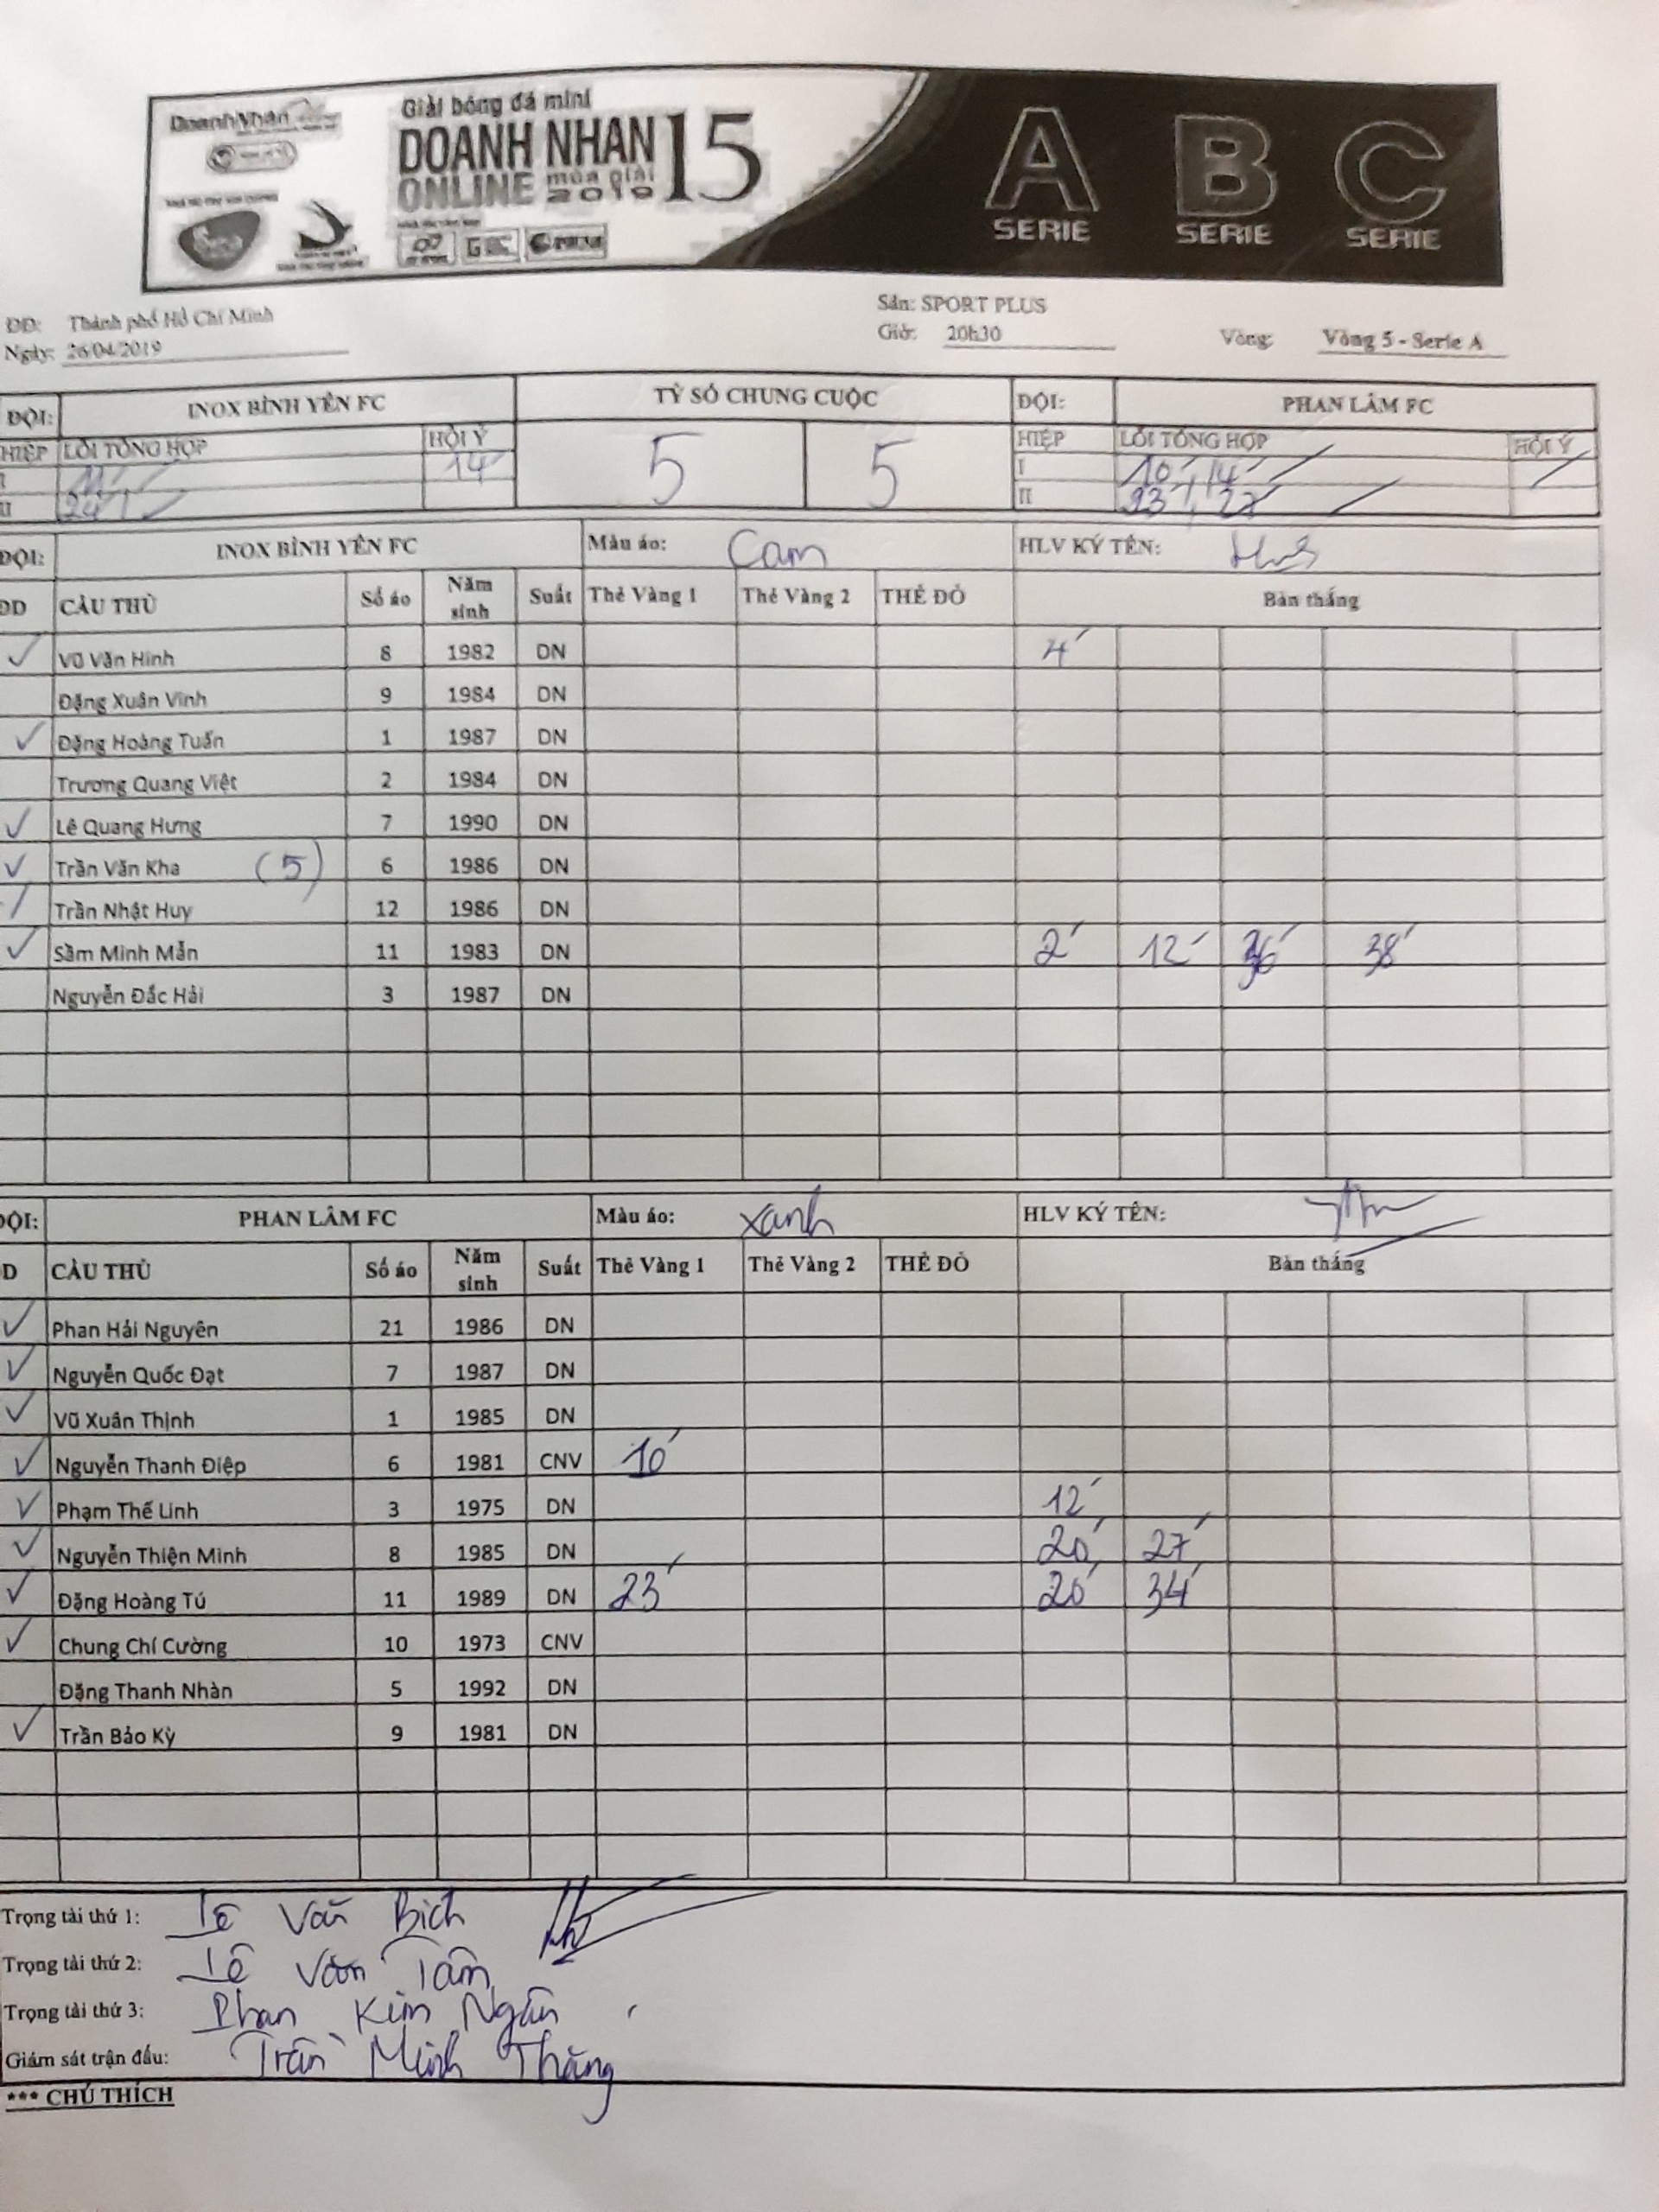 DoanhNhân
Giải bóng đá mini
DOANH NHAN 15
ONLINE mùa giải 2019
A B C
SERIE SERIE SERIE
ĐĐ: Thành phố Hồ Chí Minh Sân: SPORT PLUS
Ngày: 26/04/2019 Giờ: 20h30 Vòng: Vòng 5 - Serie A
ĐỘI: INOX BÌNH YÊN FC TỶ SỐ CHUNG CUỘC ĐỘI: PHAN LÂM FC
HIỆP LỖI TỔNG HỢP HỘI Ý 5 5 HIỆP LỖI TỔNG HỢP HỘI Ý
I 11' 14' I 10', 14'
II 24' II 23', 27'
ĐỘI: INOX BÌNH YÊN FC Màu áo: Cam HLV KÝ TÊN:
DD CẦU THỦ Số áo Năm sinh Suất Thẻ Vàng 1 Thẻ Vàng 2 THẺ ĐỎ Bàn thắng
✓ Vũ Văn Hinh 8 1982 DN 4'
Đặng Xuân Vinh 9 1984 DN
✓ Đặng Hoàng Tuấn 1 1987 DN
Trương Quang Việt 2 1984 DN
✓ Lê Quang Hưng 7 1990 DN
✓ Trần Văn Kha (5) 6 1986 DN
✓ Trần Nhật Huy 12 1986 DN
✓ Sầm Minh Mẫn 11 1983 DN 2' 12' 36' 38'
Nguyễn Đắc Hải 3 1987 DN
ĐỘI: PHAN LÂM FC Màu áo: Xanh HLV KÝ TÊN:
D CẦU THỦ Số áo Năm sinh Suất Thẻ Vàng 1 Thẻ Vàng 2 THẺ ĐỎ Bàn thắng
✓ Phan Hải Nguyên 21 1986 DN
✓ Nguyễn Quốc Đạt 7 1987 DN
✓ Vũ Xuân Thịnh 1 1985 DN
✓ Nguyễn Thanh Điệp 6 1981 CNV 10'
✓ Phạm Thế Linh 3 1975 DN 12'
✓ Nguyễn Thiện Minh 8 1985 DN 20' 27'
✓ Đặng Hoàng Tú 11 1989 DN 23' 20' 34'
✓ Chung Chí Cường 10 1973 CNV
Đặng Thanh Nhàn 5 1992 DN
✓ Trần Bảo Kỳ 9 1981 DN
Trọng tài thứ 1: Lê Văn Bích
Trọng tài thứ 2: Lê Văn Tâm
Trọng tài thứ 3: Phan Kim Ngân
Giám sát trận đấu: Trần Minh Thăng
*** CHÚ THÍCH